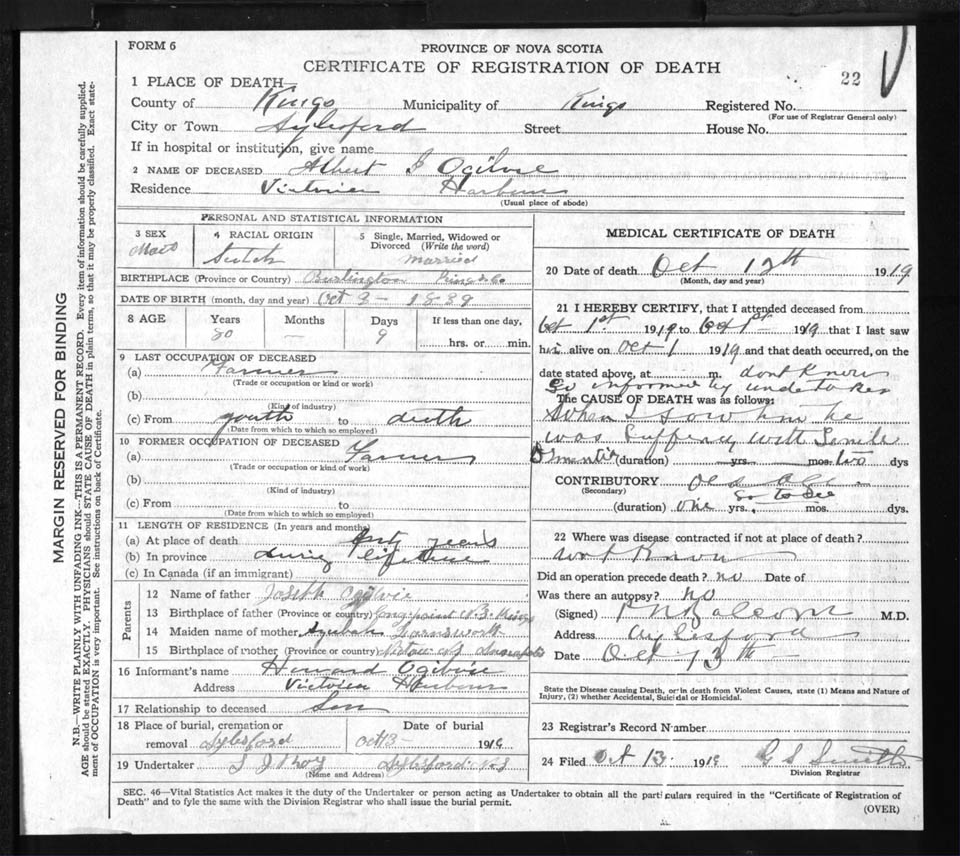 FORM 6
PROVINCE OF NOVA SCOTIA
CERTIFICATE OF REGISTRATION OF DEATH
22
1 PLACE OF DEATH—
County of Kings Municipality of Kings Registered No.
(For use of Registrar General only)
City or Town Aylesford Street House No.
If in hospital or institution, give name
2 NAME OF DECEASED Albert Ogilvie
Residence Victoria Harbour
(Usual place of abode)
PERSONAL AND STATISTICAL INFORMATION
3 SEX
Male
4 RACIAL ORIGIN
Scotch
5 Single, Married, Widowed or Divorced (Write the word)
married
BIRTHPLACE (Province or Country) Burlington Kings Co
DATE OF BIRTH (month, day and year) Oct 3 - 1839
8 AGE Years Months Days If less than one day,
80 — 9 hrs. or min.
9 LAST OCCUPATION OF DECEASED
(a) Farmer
(Trade or occupation or kind or work)
(b)
(Kind of industry)
(c) From youth to death
(Date from which to which so employed)
10 FORMER OCCUPATION OF DECEASED
(a) Farmer
(Trade or occupation or kind of work)
(b)
(Kind of industry)
(c) From to
(Date from which to which so employed)
11 LENGTH OF RESIDENCE (In years and months)
(a) At place of death years
(b) In province during lifetime
(c) In Canada (if an immigrant)
Parents
12 Name of father Joseph Ogilvie
13 Birthplace of father (Province or country) Kings
14 Maiden name of mother Farnsworth
15 Birthplace of mother (Province or Country) Annapolis
16 Informant's name Howard Ogilvie
Address Victoria Harbour
17 Relationship to deceased Son
18 Place of burial, cremation or removal Aylesford
Date of burial Oct 13 1919
19 Undertaker Aylesford N S
(Name and Address)
MEDICAL CERTIFICATE OF DEATH
20 Date of death Oct 12th 1919
(Month, day and year)
21 I HEREBY CERTIFY, that I attended deceased from
Oct 1st 1919 to Oct 1st 1919 that I last saw
him alive on Oct 1 1919 and that death occurred, on the
date stated above, at m. dont know
So informed by undertaker
The CAUSE OF DEATH was as follows:
When I saw him he
was suffering with Senile
Dementia (duration) yrs. mos. two dys
CONTRIBUTORY old age
(Secondary) So to See
(duration) one yrs. mos. dys.
22 Where was disease contracted if not at place of death?
not Known
Did an operation precede death? no Date of
Was there an autopsy? no
(Signed) Balcom M.D.
Address Aylesford
Date Oct 13th
State the Disease causing Death, or in death from Violent Causes, state (1) Means and Nature of Injury, (2) whether Accidental, Suicidal or Homicidal.
23 Registrar's Record Number
24 Filed Oct 13 1919 G S Smith
Division Registrar
SEC. 46—Vital Statistics Act makes it the duty of the Undertaker or person acting as Undertaker to obtain all the particulars required in the "Certificate of Registration of
Death" and to fyle the same with the Division Registrar who shall issue the burial permit.
(OVER)
MARGIN RESERVED FOR BINDING
N.B.—WRITE PLAINLY WITH UNFADING INK—THIS IS A PERMANENT RECORD. Every item of information should be carefully supplied.
AGE should be stated EXACTLY. PHYSICIANS should STATE CAUSE OF DEATH in plain terms, so that it may be properly classified. Exact state-
ment of OCCUPATION is very important. See instructions on back of Certificate.